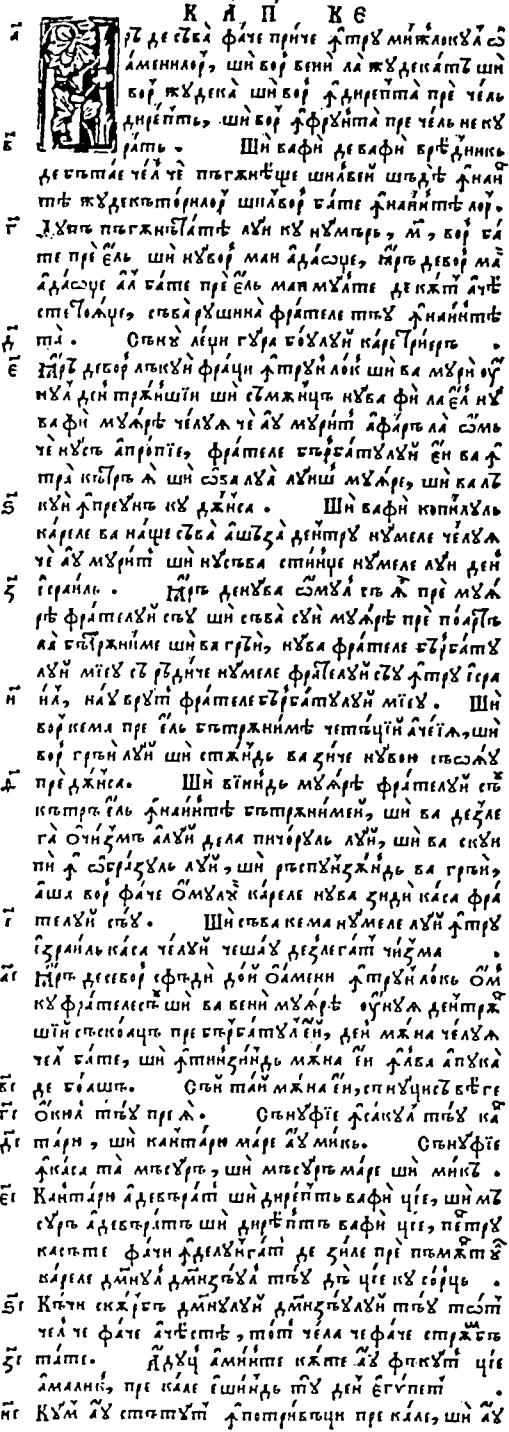 КАП КЕ
а҃ Ꙗръ де сѣва фаче приче ꙟтру мижлокꙋл ѡ
аменилѡр, ши вор вени ла жꙋдекатъ ши
вор жꙋдека ши вор ꙟдирепта пре чель
дирепть, ши вор ꙟфрꙋнта пре чель некꙋ
в҃ рать. Ши ва фи де ва фи вредникь
де бътае чел че пъгѫнѣще шил вей шѣде ꙟнаин
тѣ жꙋдекъторилор шил вор бате ꙟнаинтѣ лор.
г҃ Дꙋпъ пъгѫнѣтатѣ лꙋи кꙋ нꙋмъръ, м҃, вор ба
те пре ель ши нꙋ вор май адаѡще, ꙗръ де вор май
адаѡще ал бате пре ель май мꙋлте де кѫт ачѣ
сте тоаще, съ ва рꙋшина фрателе тъꙋ ꙟнаинтѣ
д҃ та. Сънꙋ леци гꙋра боꙋлꙋй каре триеръ.
е҃ Ꙗръ де вор лъкꙋй фраци ꙟтрꙋн лок ши ва мꙋри ꙋ
нꙋл дентрѫншїи ши съмѫнцъ нꙋ ва фи ла ел нꙋ
ва фи мꙋꙗрѣ челꙋꙗ че аꙋ мꙋрит афаръ ла ѡмь
че нꙋсъ апропїе, фрателе бърбатꙋлꙋй ей ва ꙟ
тра кътръ ꙗ ши ѡ ва лꙋа лꙋиш мꙋꙗре, ши ва лъ
ѕ҃ кꙋи ꙟпреꙋнъ кꙋ дѫнса. Ши ва фи копилꙋль
кареле ва наще съ ва ашъза дентрꙋ нꙋмеле челꙋꙗ
че аꙋ мꙋрит ши нꙋ съ ва стинце нꙋмеле лꙋи ден
з҃ ісраиль. Ꙗръ де нꙋ ва ѡмꙋл съ ꙗ пре мꙋꙗ
рѣ фрателꙋй съꙋ ши съ ва сꙋи мꙋꙗрѣ пре поарта
ла бътрѫниме ши ва грѣи, нꙋ ва фрателе бърбатꙋ
лꙋй мїеꙋ съ рѣдиче нꙋмеле фрателꙋй съꙋ ꙟтрꙋ ісра
и҃ ил, наꙋ врꙋт фрателе бърбатꙋлꙋй мїеꙋ. Ши
вор кема пре ель бътрѫнимѣ четъций ачеїꙗ, ши
вор грѣи лꙋй ши стѫндь ва зиче нꙋ вою съѡ ꙗꙋ
ѳ҃ пре дѫнса. Ши вїиндь мꙋꙗрѣ фрателꙋй съꙋ
кътръ ель ꙟнаинтѣ бътрѫнимей, ши ва дезле
га ѡ чизмъ алꙋй дела пичорꙋль лꙋй, ши ва скꙋи
пи ꙟ ѡбразꙋль лꙋй, ши ръспꙋнзѫндь ва грѣи,
аша вор фаче омꙋлꙋй кареле нꙋ ва зиди каса фра
і҃ телꙋй съꙋ. Ши съ ва кема нꙋмеле лꙋй ꙟтрꙋ
ізраиль каса челꙋй че шаꙋ дезлегат чизма.
аі҃ Ꙗръ де се вор сфъди дой оамени ꙟтрꙋн локь ом
кꙋ фрателе съꙋ ши ва вени мꙋꙗрѣ ꙋнꙋꙗ дентрѫ
шїй съ скоацъ пре бърбатꙋл ей, ден мѫна челꙋꙗ
чел бате, ши ꙟтинзиндь мѫна ей ꙟл ва апꙋка
ві҃ де боашъ. Съй тай мѫна ей, съ нꙋцисъ вѣ ге
гі҃ окюл тъꙋ пре ꙗ. Сънꙋ фїе ꙟ сакꙋл тъꙋ ка
ді҃ тарю, ши кантарю маре аꙋ микь. Сънꙋ фїе
ꙟ каса та мъсꙋръ, ши мъсꙋръ маре ши микъ.
еі҃ Кантарю адевърат ши дирепть ва фи цїе, ши мъ
сꙋръ адевъратъ ши дирептъ ва фи цїе, пентрꙋ
ка съ те фачи ꙟделꙋнгат де зиле пре пъмѫнтꙋ
кареле дмнꙋл дмнзъꙋл тъꙋ дъ цїе кꙋ сорць.
ѕі҃ Къчи скѫрбъ дмнꙋлꙋй дмнзъꙋлꙋй тъꙋ тот
чел че фаче ачѣстѣ, тот чела че фаче стрѫмбъ
зі҃ тате. Адꙋц аминте кѫте аꙋ фъкꙋт цїе
амалик, пре кале ешиндь тꙋ ден египет.
иі҃ Кꙋм аꙋ стътꙋт ꙟпотривъци пре кале, ши аꙋ